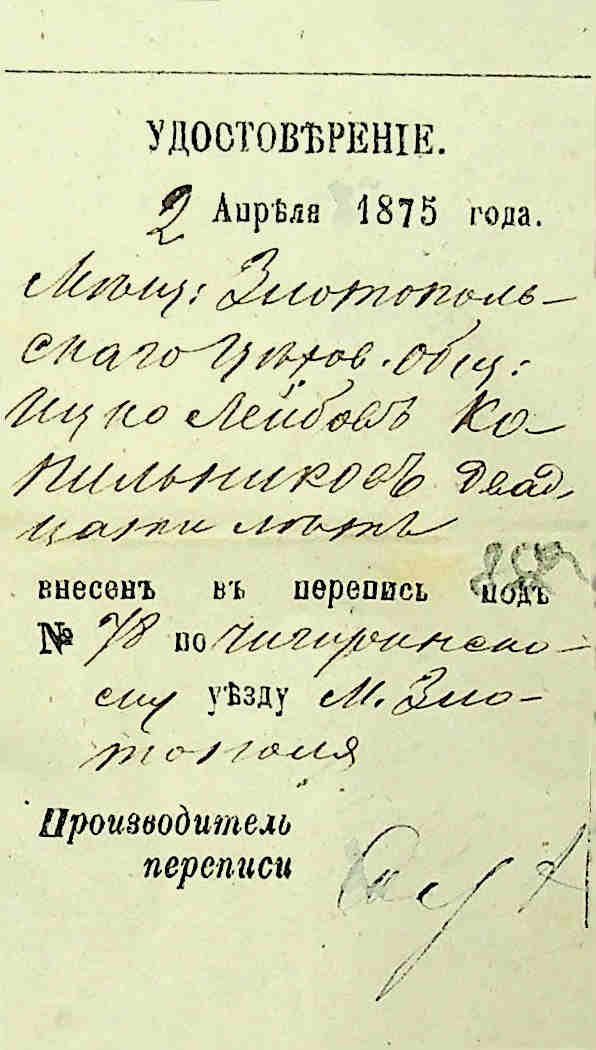 УДОСТОВѢРЕНІЕ.
2 Апрѣля 1875 года.
Мѣщ: Златополь-
скаго Цѣхов. общ:
Ицко Лейбовъ Ко-
пильниковъ двад-
цати лѣтъ
внесенъ въ перепись подъ
№ 78 по Чигиринско-
му уѣзду М. Зла-
тополя
Производитель
переписи